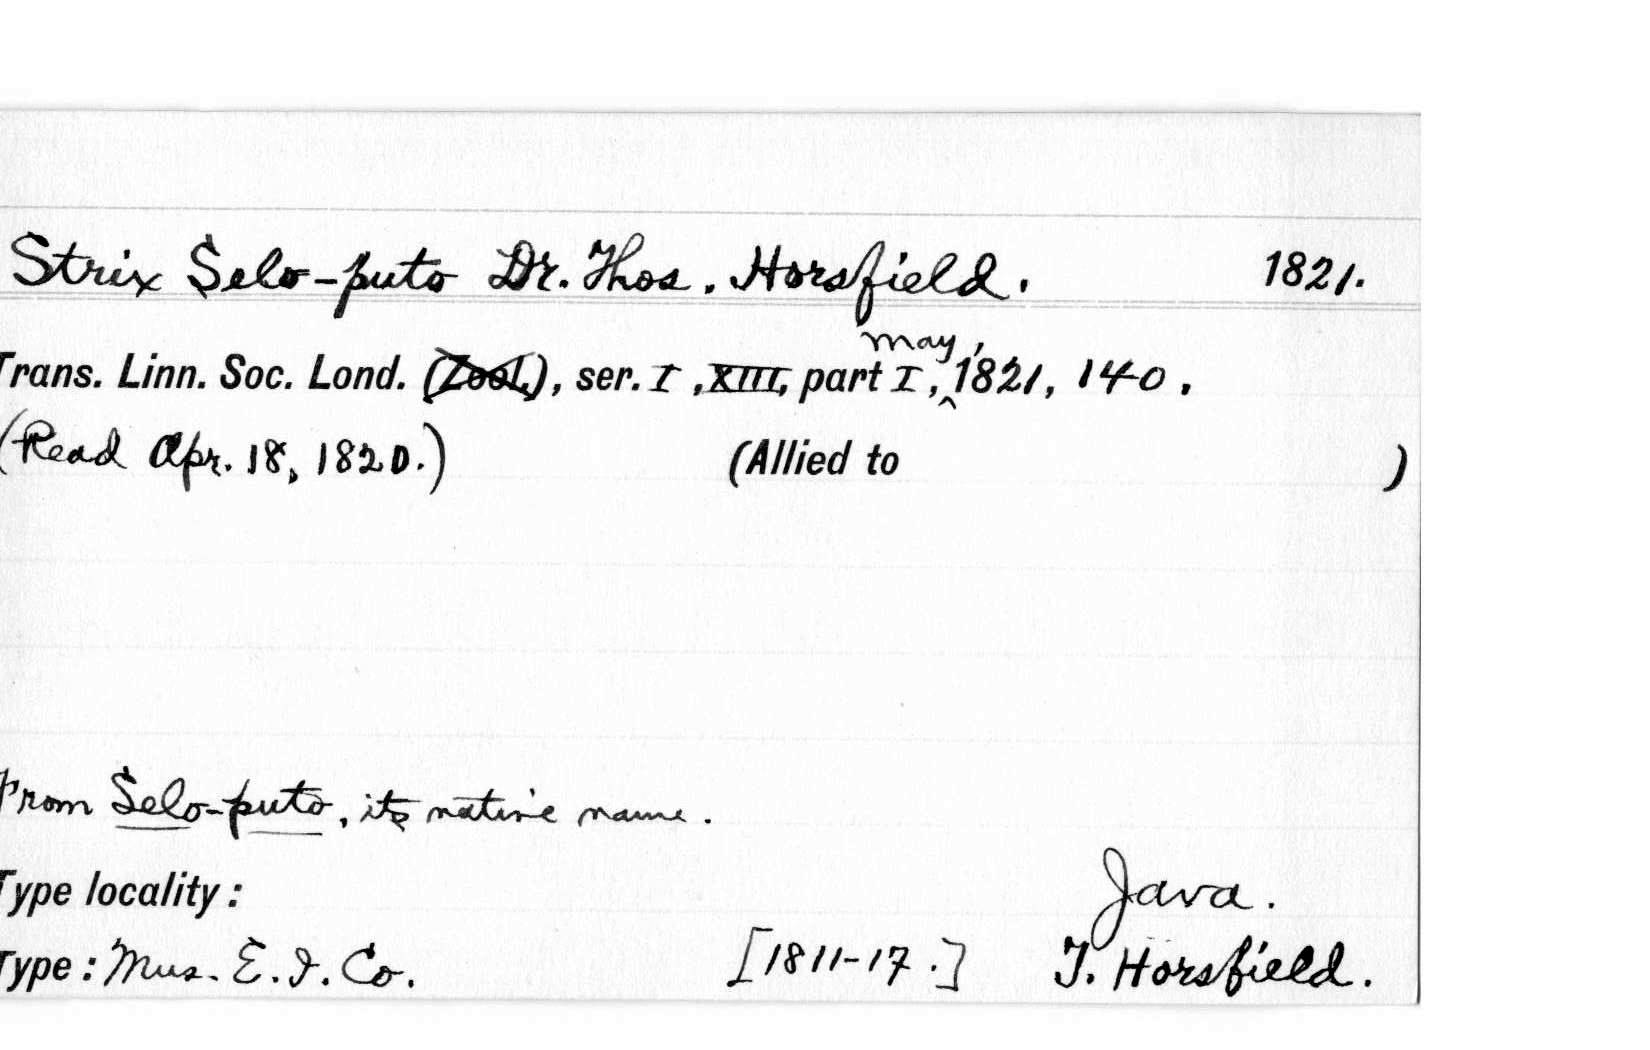 Strix Selo-puto Dr. Thos. Horsfield. 1821.
Trans. Linn. Soc. Lond. (Zool.), ser. I, XIII, part I, May, 1821, 140.
(Read Apr. 18, 1820.) (Allied to )
From Selo-puto, its native name.
Type locality: Java.
Type: Mus. E. I. Co. [1811-17.] T. Horsfield.